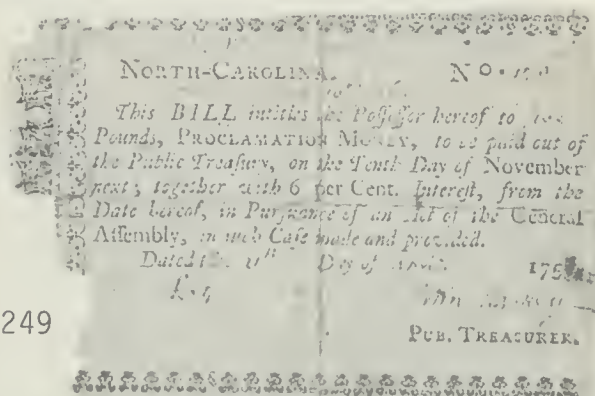 NORTH-CAROLINA. No.
This BILL intitles the Possessor hereof to
Pounds, PROCLAMATION MONEY, to be paid out of
the Public Treasury, on the Tenth Day of November
next; together with 6 per Cent. Interest, from the
Date hereof, in Pursuance of an Act of the General
Assembly, in such Case made and provided.
Dated the Day of 175
PUB. TREASURER.
249